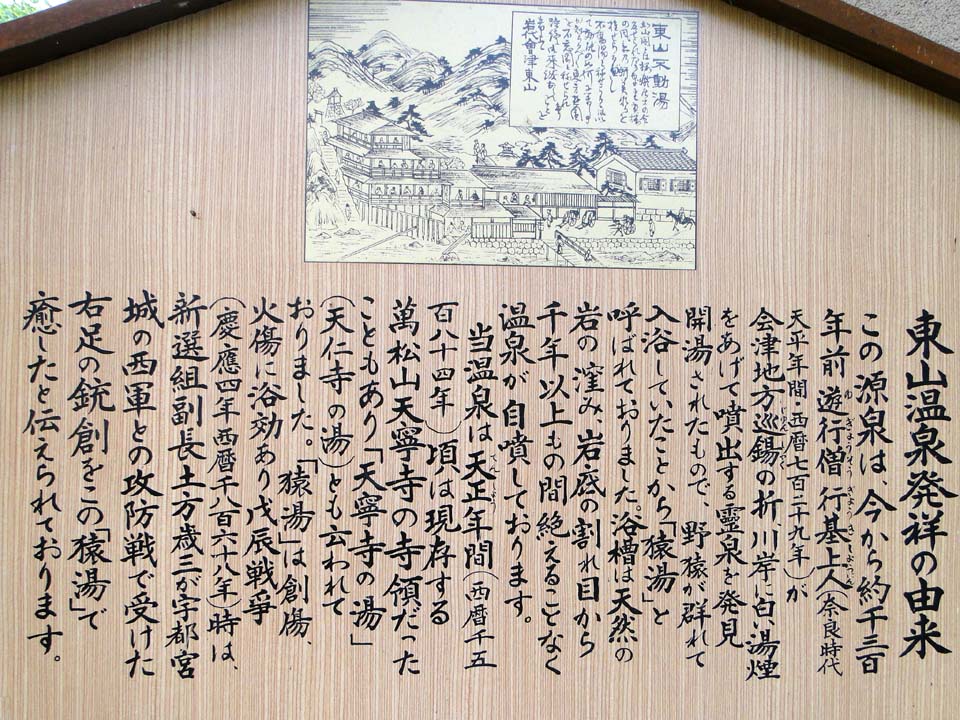 東山温泉発祥の由来
この源泉は、今から約千三百
年前遊行僧行基上人(奈良時代
天平年間 西暦七百二十九年)が
会津地方巡錫の折、川岸に白い湯煙
をあげて噴出する霊泉を発見
開湯されたもので、野猿が群れて
入浴していたことから「猿湯」と
呼ばれておりました。浴槽は天然の
岩の窪み、岩底の割れ目から
千年以上もの間絶えることなく
温泉が自噴しております。
当温泉は天正年間(西暦千五
百八十四年)頃は現存する
萬松山天寧寺の寺領だった
こともあり「天寧寺の湯」
(天仁寺の湯)とも云われて
おりました。「猿湯」は創傷、
火傷に浴効あり戊辰戦争
(慶應四年 西暦千八百六十八年)時は、
新選組副長土方歳三が宇都宮
城の西軍との攻防戦で受けた
右足の銃創をこの「猿湯」で
癒したと伝えられております。
東山不動湯
岩代會津東山